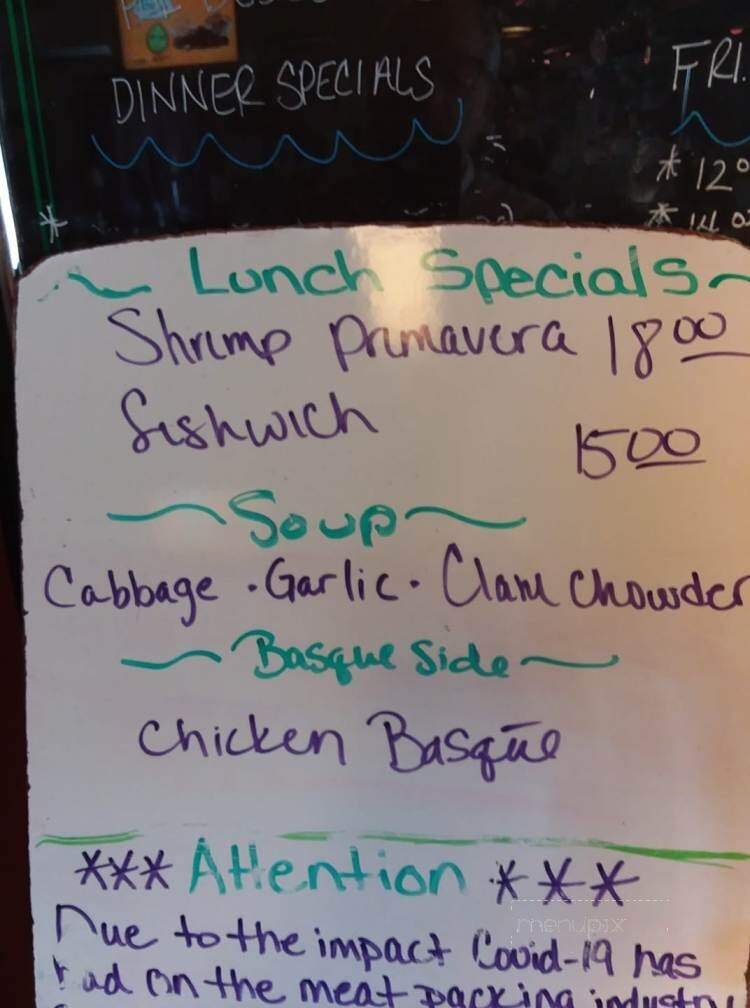 DINNER SPECIALS
FRI.
* 12
* 14
*
~ Lunch Specials ~
Shrimp Primavera 18 00
fishwich
15 00
~ Soup ~
Cabbage · Garlic · Clam Chowder
~ Basque Side ~
Chicken Basque
*** Attention ***
Due to the impact Covid-19 has
had on the meat packing industry
menupix